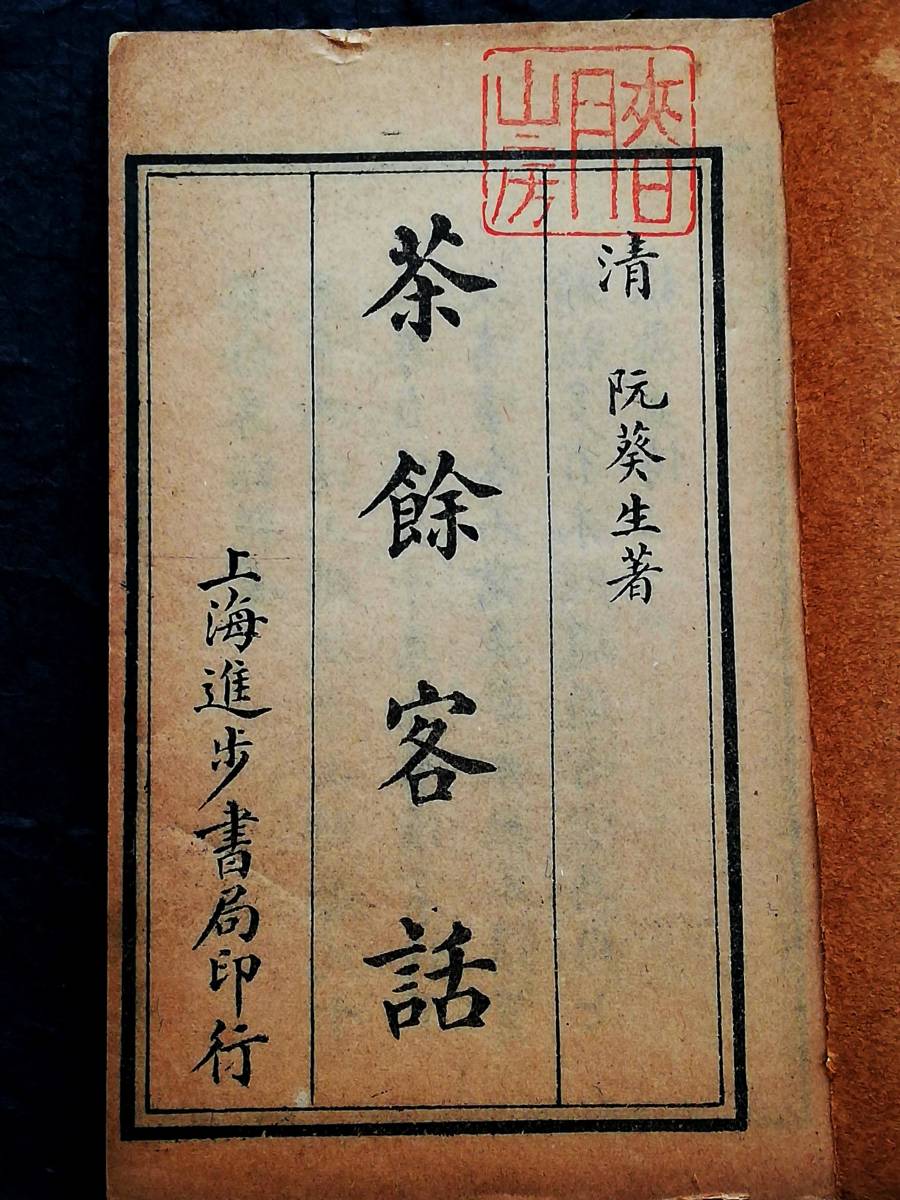 月
山房
清 阮葵生著
茶餘客話
上海進步書局印行